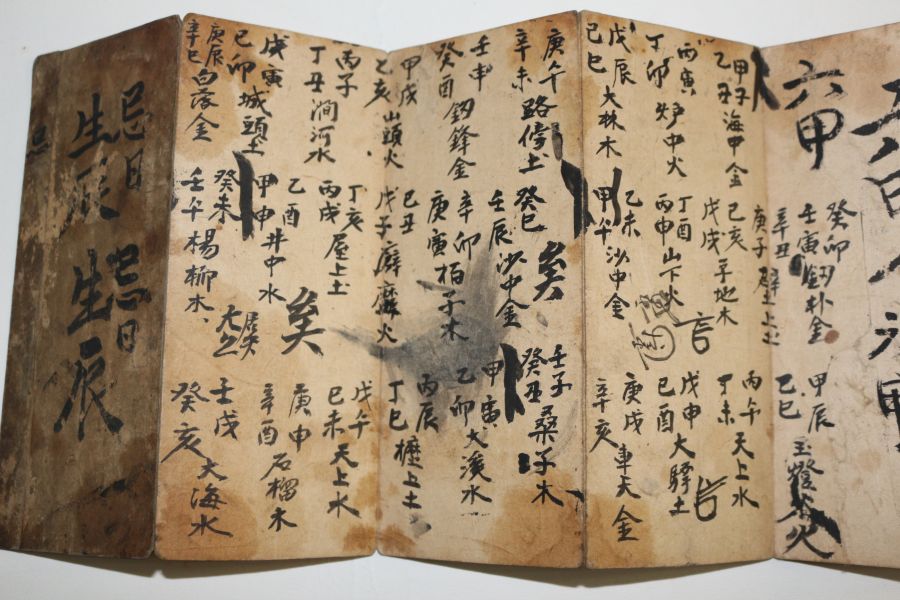 六甲
甲子
乙丑 海中金
丙寅
丁卯 炉中火
戊辰
己巳 大林木
庚午
辛未 路傍土
壬申
癸酉 釰鋒金
甲戌
乙亥 山頭火
丙子
丁丑 澗河水
戊寅
己卯 城頭土
庚辰
辛巳 白蠟金
壬午
癸未 楊柳木
甲申
乙酉 井中水
丙戌
丁亥 屋上土
戊子
己丑 霹靂火
庚寅
辛卯 栢子木
壬辰
癸巳 沙中金
甲午
乙未 沙中金
丙申
丁酉 山下火
戊戌
己亥 平地木
庚子
辛丑 壁上土
壬寅
癸卯 釰朴金
甲辰
乙巳 燈火
丙午
丁未 天上水
戊申
己酉 大驛土
庚戌
辛亥 金
壬子
癸丑 桑子木
甲寅
乙卯 大溪水
丙辰
丁巳 土
戊午
己未 天上水
庚申
辛酉 石榴木
壬戌
癸亥 大海水
矣
矣
忌日
生辰
忌日
生辰
忌